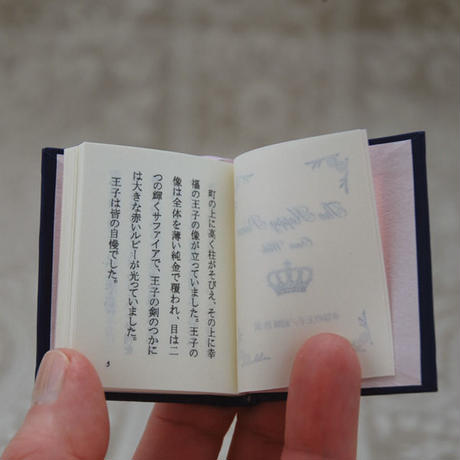 町の上に高く柱がそびえ、その上に幸
福の王子の像が立っていました。王子の
像は全体を薄い純金で覆われ、目は二
つの輝くサファイアで、王子の剣のつかに
は大きな赤いルビーが光っていました。
王子は皆の自慢でした。
5